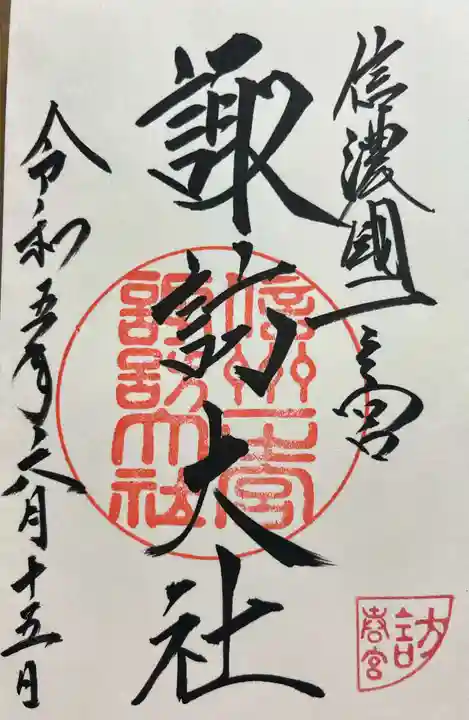 信濃國一之宮
諏訪大社
令和五年六月十五日
信州一之宮
諏訪大社
諏訪
春宮